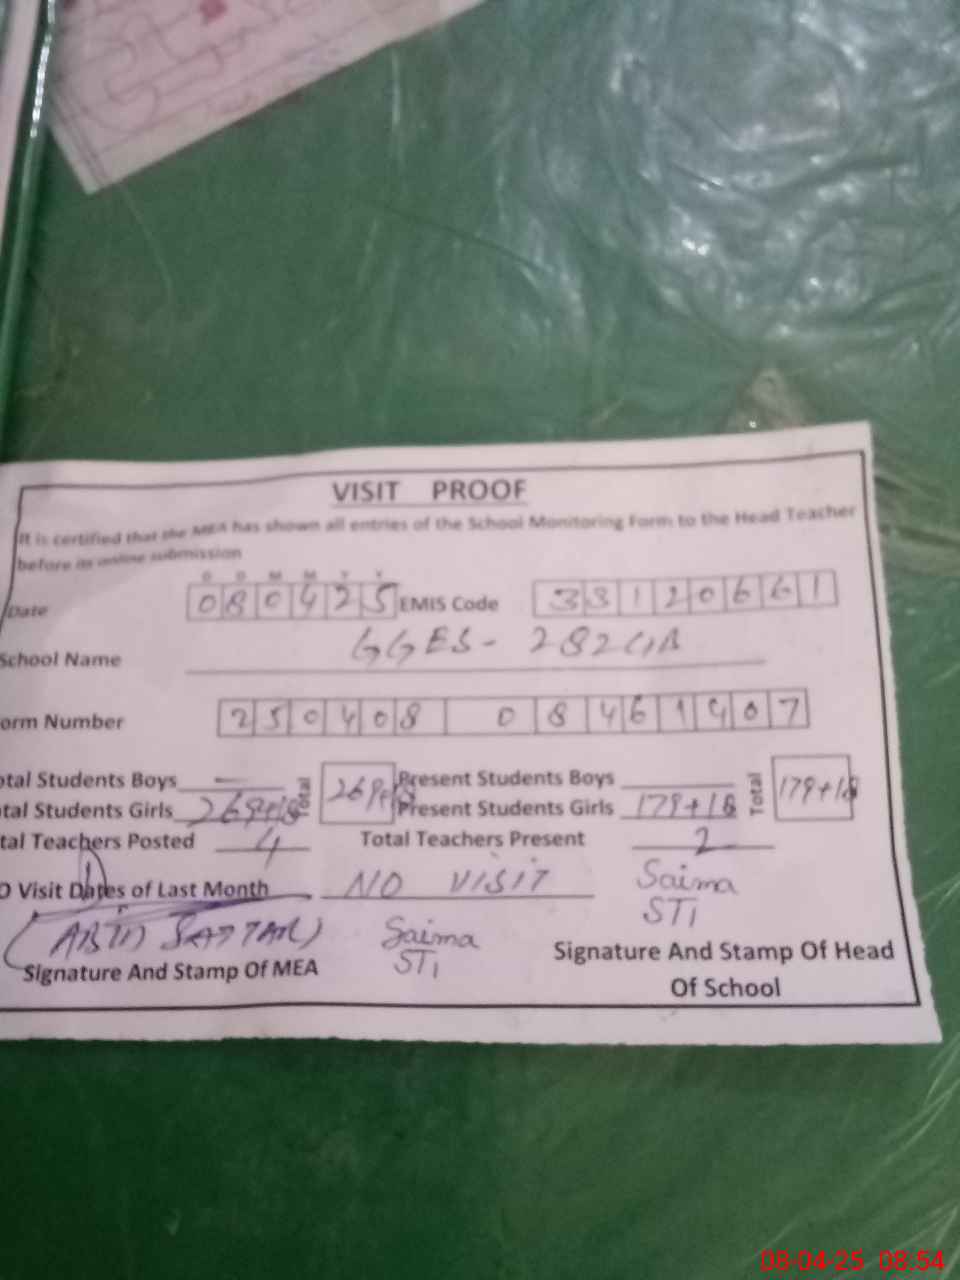 VISIT PROOF
It is certified that the MEA has shown all entries of the School Monitoring Form to the Head Teacher
before its online submission
D D M M Y Y
Date 080425 EMIS Code 33120661
School Name GGES- 282GB
orm Number 250408 08461407
otal Students Boys — Total 269+18 Present Students Boys Total 179+18
tal Students Girls 269+18 Present Students Girls 179+18
tal Teachers Posted 4 Total Teachers Present 2
O Visit Dates of Last Month NO VISIT Saima
STI
(ABID SATTAR) Saima
STI
Signature And Stamp Of MEA Signature And Stamp Of Head
Of School
08-04-25 08:54